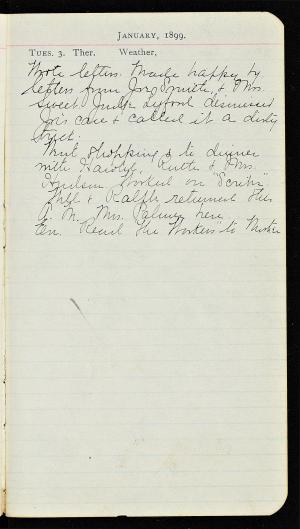 JANUARY, 1899.
TUES. 3. Ther. Weather,
Wrote letters. Made happy by
letters from Joro Smith, & Mrs.
Sweet. Judge dismissed
Jo's case & called it a dirty
trick.
Went shopping & to dinner
with Karolyn, Ruth & Mrs.
worked on "Scribn".
& Ralph returned this
A. M. Mrs. Palmer here
ten. Read "the Workers" to